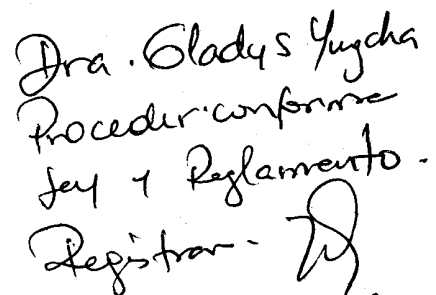 Dra. Gladys Yugcha
Proceder conforme
Ley y Reglamento.
Registrar.